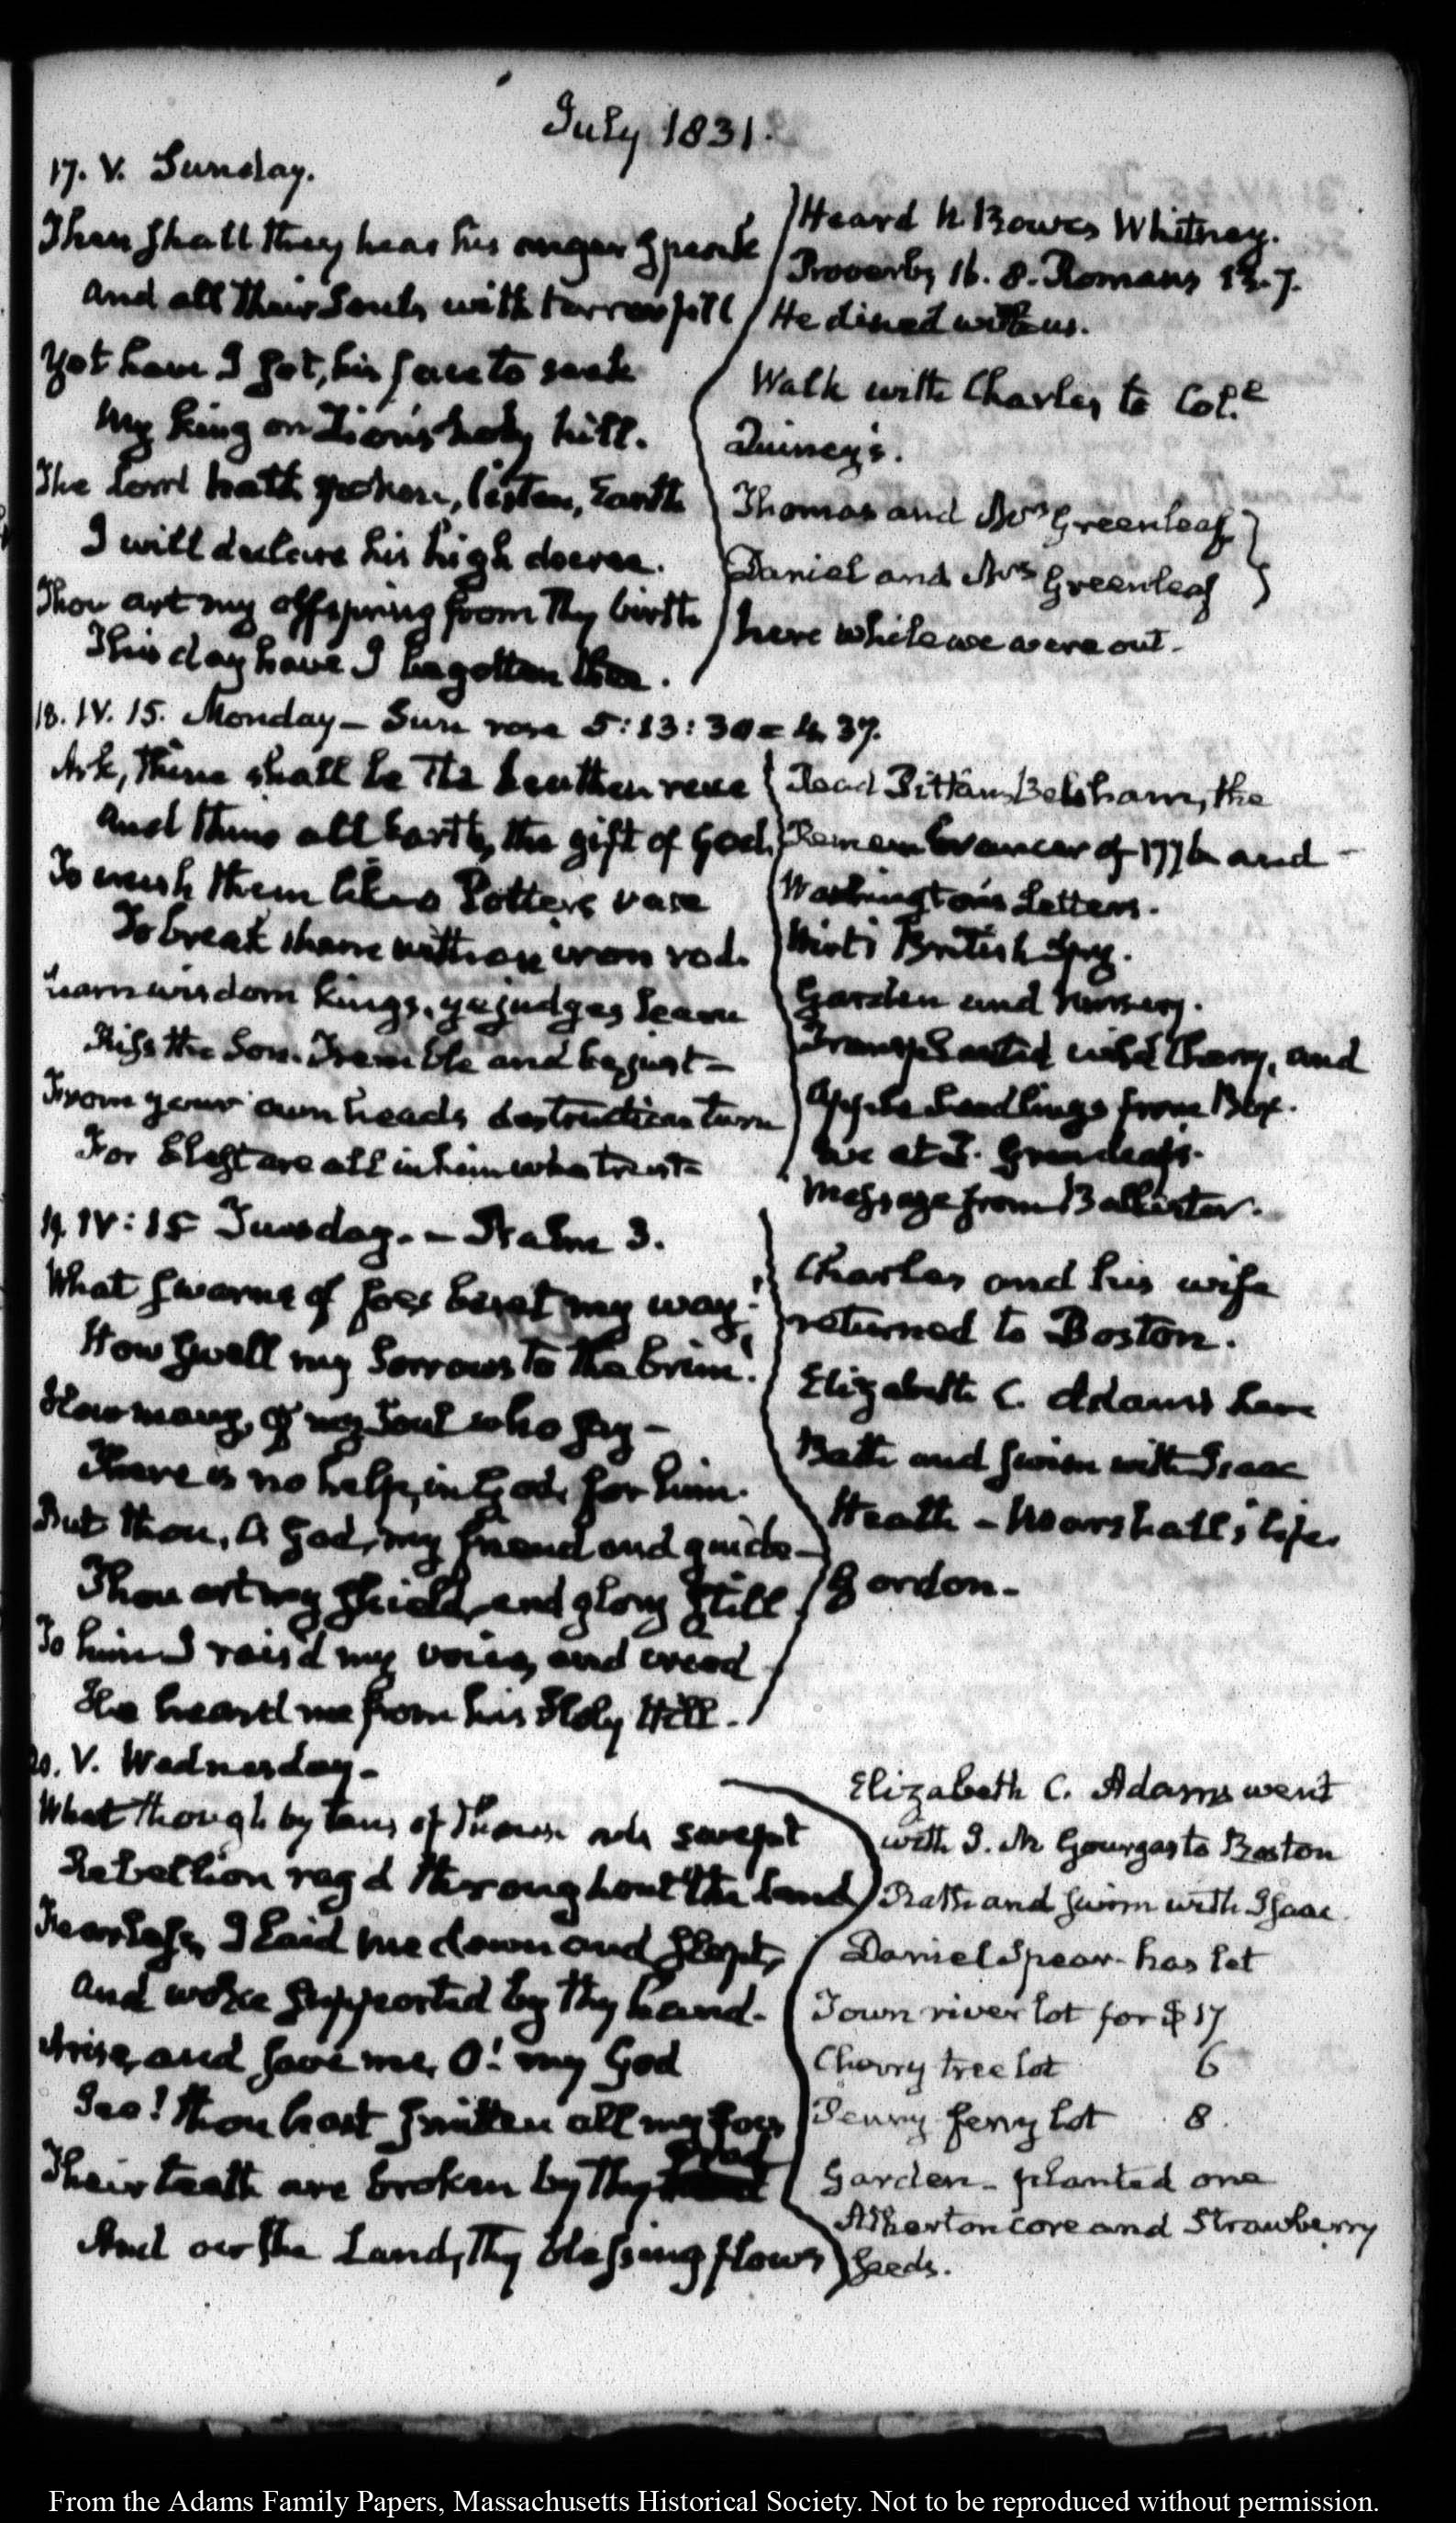 July 1831.
17. V. Sunday.
Then shall they hear his anger speak
And all their Souls with terror fill
Yet have I set, his face to seek
My king on Zion's holy hill.
The Lord hath spoken, listen, Earth
I will declare his high decree.
Thou art my offspring from thy birth
This day have I begotten thee.
Heard N. Bowes Whitney.
Proverbs 16. 8. Romans 13. 7.
He dined with us.
Walk with Charles to Col.e
Quincy's.
Thomas and Mrs Greenleaf
Daniel and Mrs Greenleaf
here while we were out.
18. IV. 15. Monday — Sun rose 5:13:30 = 4. 37.
Ask, thine shall be the heathen race
And thine all Earth, the gift of God,
To crush them like a Potter's vase
To break them with an iron rod.
Learn wisdom kings, ye judges learn
Kiss the Son. Tremble and be just —
From your own heads destruction turn
For blest are all in him who trust
Read Belsham, the
Remembrancer of 1776 and
Washington's Letters.
Wirt's British Spy.
Garden and Nursery.
Transplanted wild Cherry, and
Apple seedlings from Box.
Eve at T. Greenleaf's.
Message from Ballister.
19. IV: 15 Tuesday. — Psalm 3.
What swarms of foes beset my way!
How swell my Sorrows to the brim!
How many, of my Soul who say —
There is no help, in God, for him.
But thou, O God, my friend and guide —
Thou art my shield, and glory still
To him I rais'd my voice, and cried
He heard me from his Holy Hill.
Charles and his wife
returned to Boston.
Elizabeth C. Adams here
Bath and swim with Isaac
Heath — Marshall's life.
Gordon —
20. V. Wednesday —
What though by tens of Thousands swept
Rebellion rag'd throughout the Land
Fearless, I laid me down and slept,
And woke supported by thy hand.
Arise, and save me, O! my God
See! thou hast smitten all my foes
Their teeth are broken by thy Rod
And o'er the Land, thy blessing flows
Elizabeth C. Adams went
with J. M Gourgas to Boston
Bath and swim with Isaac
Daniel Spear has let
Town river lot for $17
Cherry tree lot 6
Penny ferry lot 8.
Garden — planted one
Atherton core and Strawberry
Seeds.
From the Adams Family Papers, Massachusetts Historical Society. Not to be reproduced without permission.